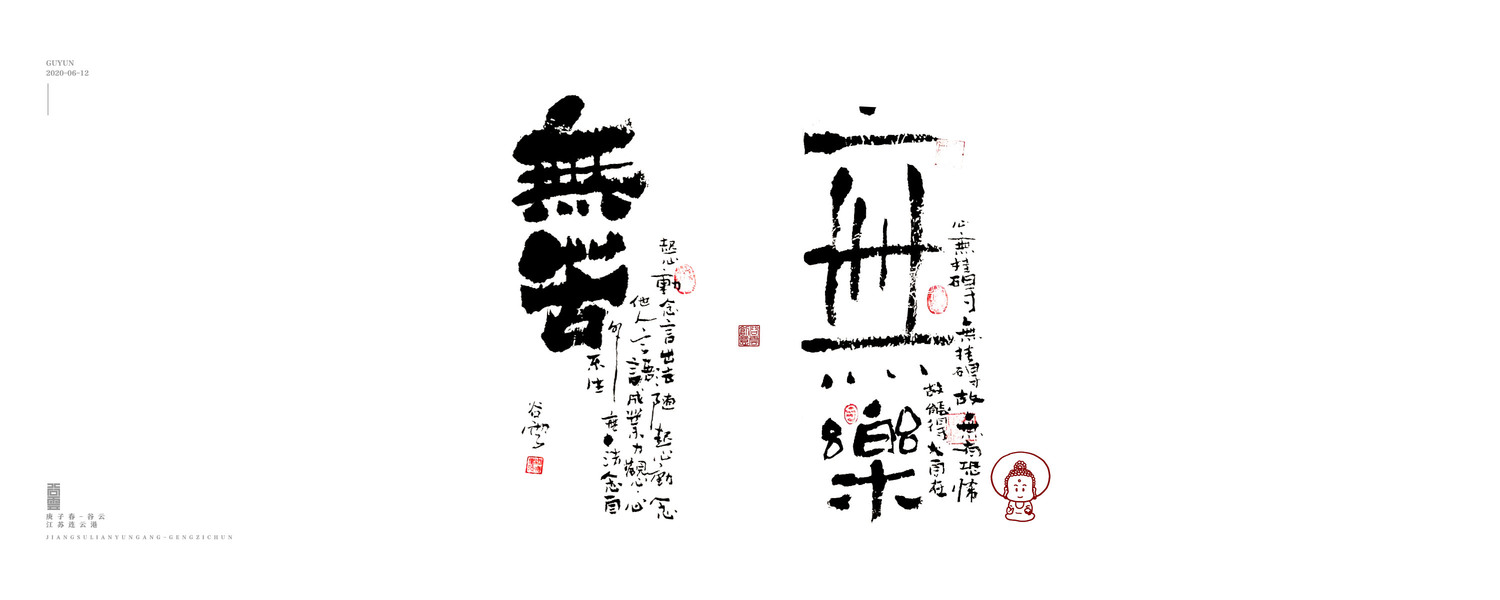 GUYUN
2020-06-12
無樂
心無挂碍無挂碍故無有恐怖
故能得大自在
無苦
起心動念言出法随起心動念
他人言語成業力觀心
谷雲
庚子春-谷云
江苏连云港
JIANGSULIANYUNGANG-GENGZICHUN